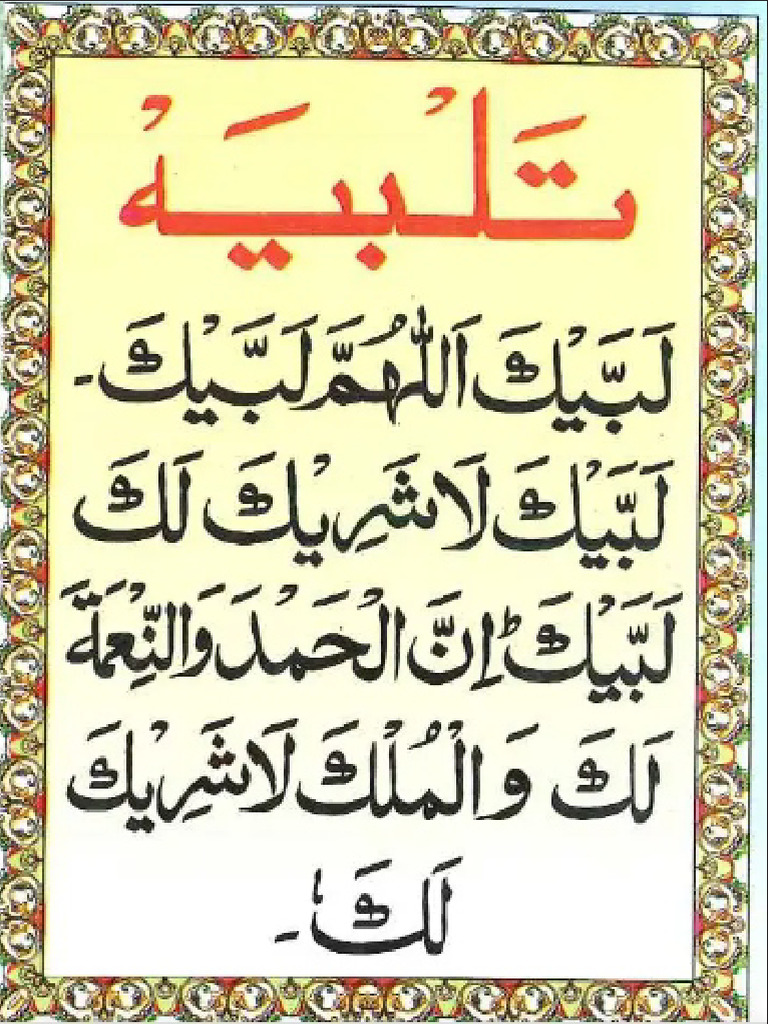 تَلْبِيَهْ
لَبَّيْكَ اَللّٰهُمَّ لَبَّيْكَ۔
لَبَّيْكَ لَا شَرِيْكَ لَكَ
لَبَّيْكَ ؕ اِنَّ الْحَمْدَ وَالنِّعْمَةَ
لَكَ وَالْمُلْكَ لَا شَرِيْكَ
لَكَ۔